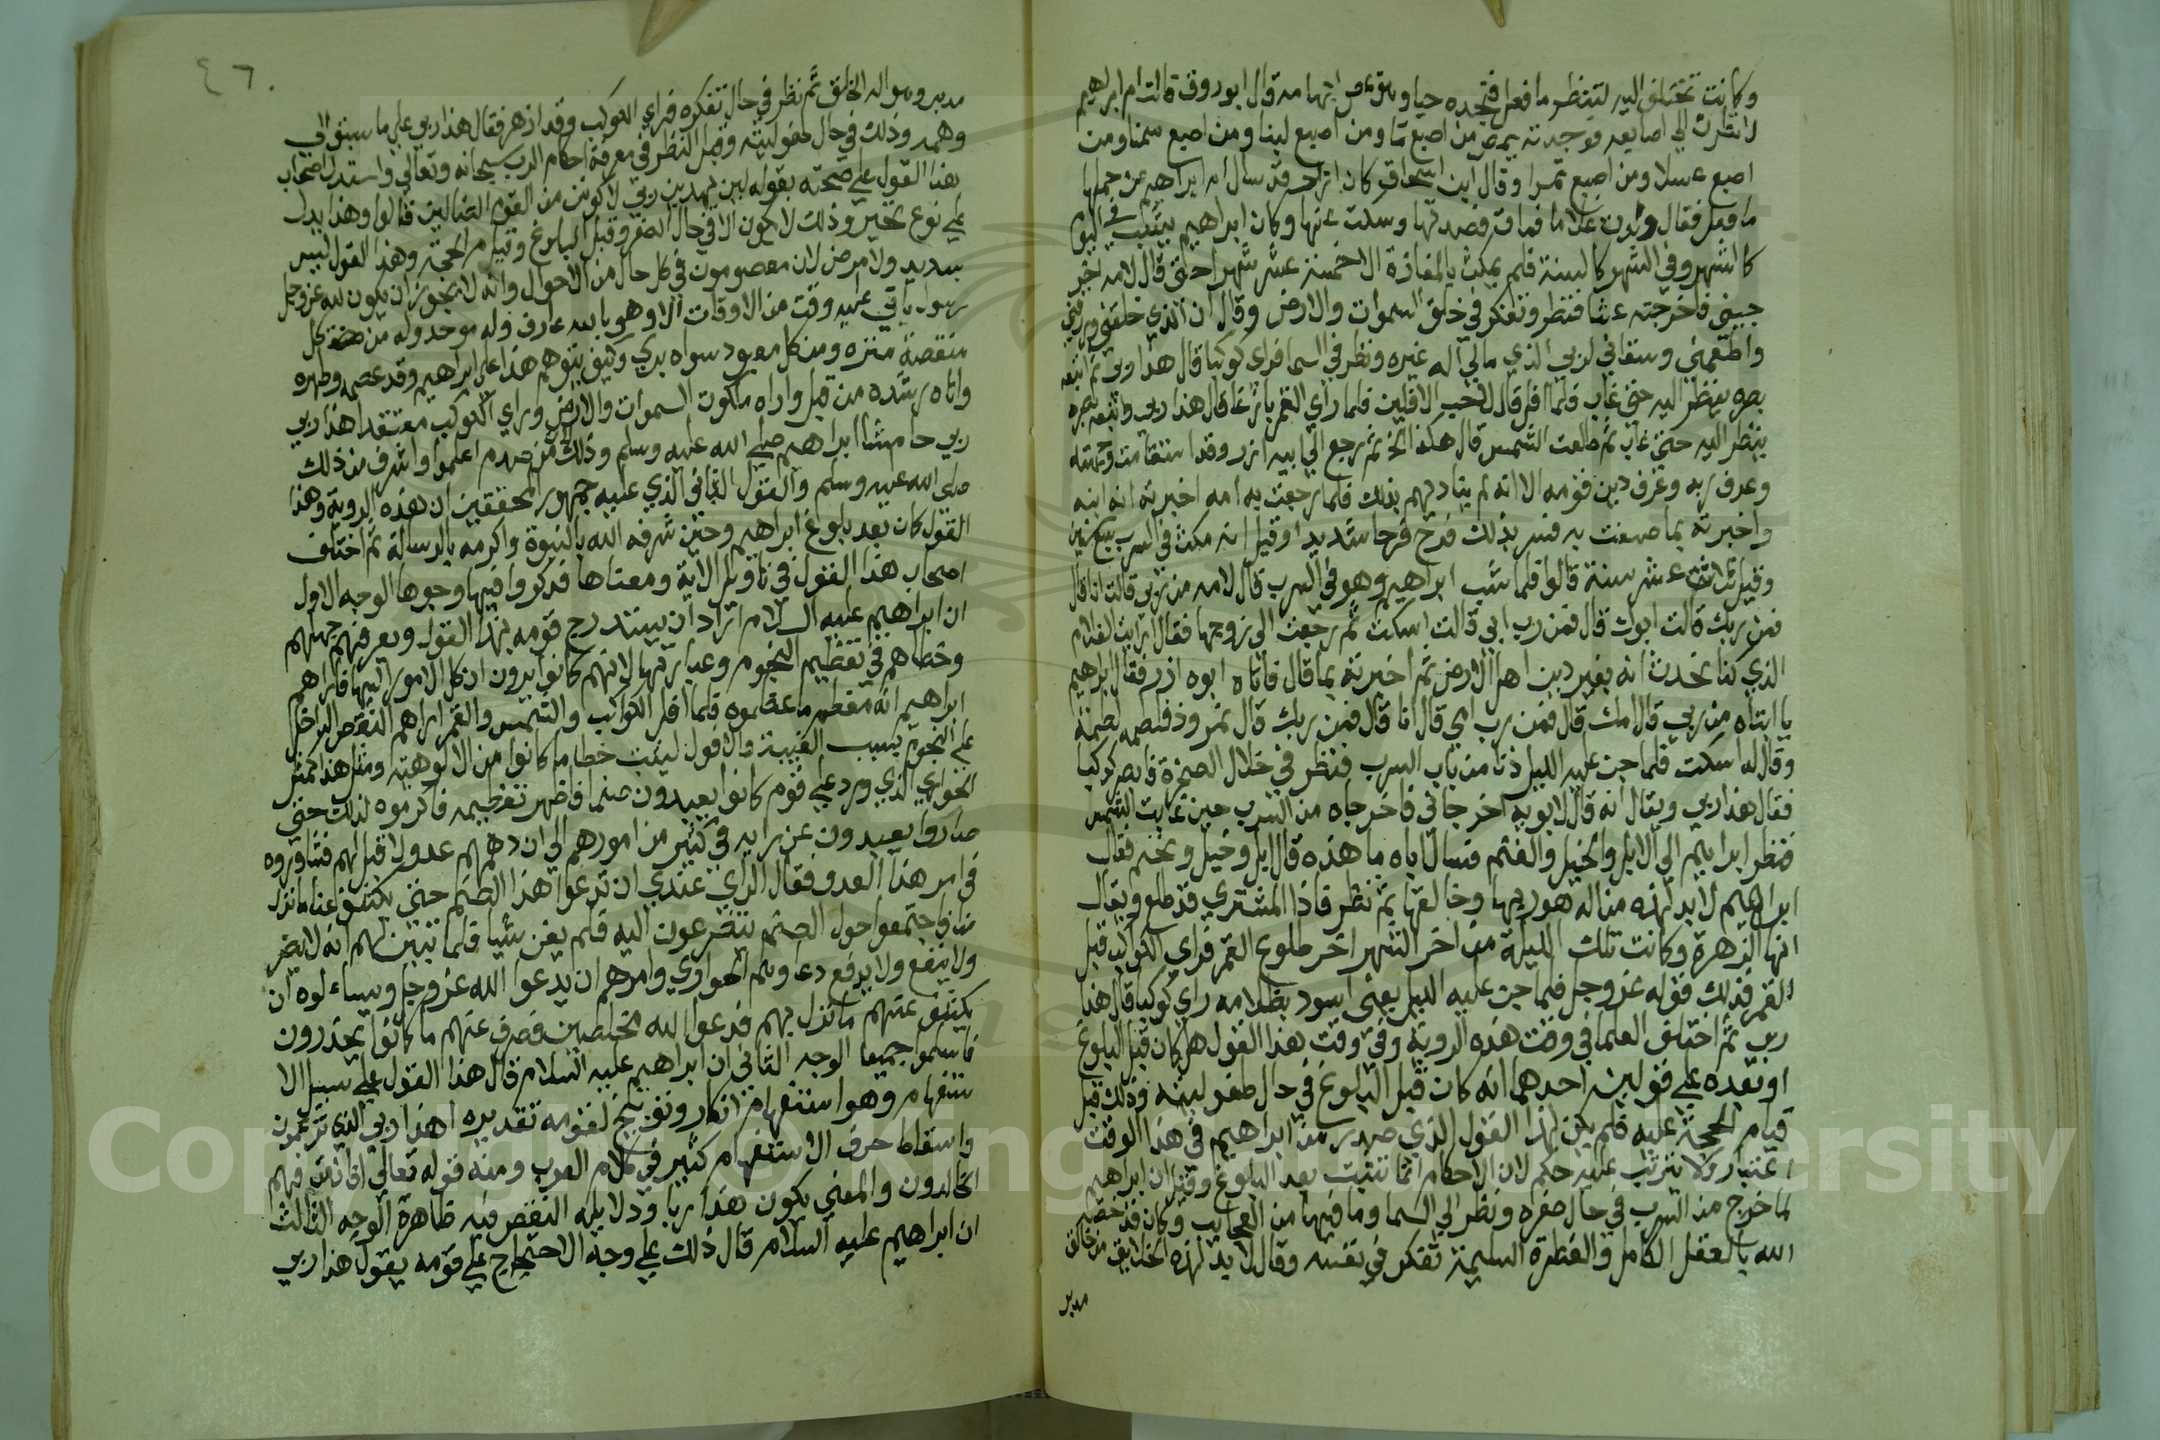 وكانت تختلف اليه لتنظر ما فعل فتجده حيا وهو يمص ابهامه قال ابو روق قالت ام ابراهيم
لانظرن الي اصابعه فوجدته يمص من اصبع ما ومن اصبع لبنا ومن اصبع سمنا ومن
اصبع عسلا ومن اصبع تمرا وقال ابن اسحاق كان ازر قد سال ام ابراهيم عن حملها
ما فعل فقال ولدت غلاما فمات فصدقها وسكت عنها وكان ابراهيم يشب في اليوم
كالشهر وفي الشهر كالسنة فلم يمكث بالمغارة الا خمسة عشر شهرا حتى قال لامه اخر
جيني فاخرجته عشا فنظر وتفكر في خلق السموات والارض وقال ان الذي خلقني ورزقني
واطعمني وسقاني لربي الذي مالي اله غيره ونظر في السما فراى كوكبا قال هذا ربي ثم اتبعه
بصره ينظر اليه حتى غاب فلما افل قال لا احب الافلين فلما راي القمر بازغا قال هذا ربي واتبعه بصره
ينظر اليه حتى غاب ثم طلعت الشمس قال هكذا الخ ثم رجع الي ابيه ازر وقد استقامت وجهته
وعرف ربه وعرف دين قومه الا انه لم ينادهم بذلك فلما رجعت به امه اخبرته انه ابنه
واخبرته بما صنعت به فسر بذلك فرح فرحا شديدا وقيل انه مكث في السرب سبع سنين
وقيل ثلاث عشر سنة قالوا فلما شب ابراهيم وهو في السرب قال لامه من ربي قالت انا قال
فمن ربك قالت ابوك قال فمن رب ابي قالت اسكت ثم رجعت الى زوجها فقال ارايت الغلام
الذي كنا نحدث انه يغير دين اهل الارض ثم اخبرته بما قال فاتاه ابوه ازر فقال ابراهيم
يا ابتاه من ربي قال امك قال فمن رب امي قال انا قال فمن ربك قال نمروذ فلطمه لطمة
وقال له اسكت فلما جن عليه الليل دنا من باب السرب فنظر في خلال الصخرة فابصر كوكبا
فقال هذا ربي ويقال انه قال لابويه اخرجاني فاخرجاه من السرب حين غابت الشمس
فنظر ابراهيم الي الابل والخيل والغنم فسال اباه ما هذه قال ابل وخيل وغنم فقال
ابراهيم لابد لهذه من اله هو ربها وخالقها ثم نظر فاذا المشتري قد طلع ويقال
انها الزهرة وكانت تلك الليلة من اخر الشهر اخر طلوع القمر فراى الكوكب قبل
القمر فذلك قوله عز وجل فلما جن عليه الليل يعنى اسود بظلامه راى كوكبا قال هذا
ربي ثم اختلف العلما في وقت هذه الروية وفي وقت هذا القول هل كان قبل البلوغ
او بعده على قولين احدهما انه كان قبل البلوغ في حال طفوليته وذلك قبل
قيام الحجة عليه فلم يكن لهذا القول الذي صدر من ابراهيم في هذا الوقت
اعتبار ولا يترتب عليه حكم لان الاحكام انما تثبت بعد البلوغ وقيل ان ابراهيم
لما خرج من السرب في حال صغره ونظر الي السما وما فيها من العجايب وكان قد خصه
الله بالعقل الكامل والفطرة السليمة تفكر في نفسه وقال لابد لهذه الخلايق من خالق
مدبر
٤٦
مدبر وهو اله الخلق ثم نظر في حال تفكره فراى الكوكب وقد ازهر فقال هذا ربي على ما سبق الى
وهمه وذلك في حال طفوليته وقبل النظر في معرفة احكام الرب سبحانه وتعالى واستدل اصحاب
هذا القول على صحته بقوله لين لم يهدني ربي لاكونن من القوم الضالين قالوا وهذا يدل
على نوع تحير وذلك لا يكون الا في حال الصغر وقبل البلوغ وقيام الحجة وهذا القول ليس
بسديد ولا مرض لان معصومون في كل حال من الاحوال وانه لا يجوز ان يكون لله عز وجل
رسول ياتي عليه وقت من الاوقات الا وهو بالله عارف وله موحد وله من كل
منقصة منزه ومن كل معبود سواه بري وكيف يتوهم هذا على ابراهيم وقد عصمه وطهره
واتاه رشده من قبل واراه ملكوت السموات والارض وراي الكوكب معتقدا هذا ربي
ربي حاشا ابراهيم صلى الله عليه وسلم وذلك من اعلموا واشرف من ذلك
صلى الله عليه وسلم والقول الثاني الذي عليه جمهور المحققين ان هذه الروية وهذا
القول كان بعد بلوغ ابراهيم وحين شرفه الله بالنبوة واكرمه بالرسالة ثم اختلف
اصحاب هذا القول في تاويل الاية ومعناها فذكروا فيها وجوها الوجه الاول
ان ابراهيم عليه السلام اراد ان يستدرج قومه بهذا القول ويعرفهم جهلهم
وخطاهم في تعظيم النجوم وعبادتها لانهم كانوا يرون ان كل الامور اليها فاراهم
ابراهيم انه معظم ما عظموه فلما افل الكوكب والشمس والقمر اراهم النقص الداخل
على النجوم بسبب الغيبة والافول ليثبت خطا ما كانوا من الالوهية ومثل هذا كمثل
الحواري الذي ورد على قوم كانوا يعبدون صنما فاظهر تعظيمه فاكرموه لذلك حتى
صاروا يصدرون عن رايه في كثير من امورهم الي ان دهمهم عدو لا قبل لهم فشاوروه
في امر هذا العدو فقال الراي عندي ان تدعوا هذا الصنم حتى يكشف عنا ما نزل
بنا فاجتمعوا حول الصنم يتضرعون اليه فلم يغن شيا فلما تبين لهم انه لا يضر
ولا ينفع ولا يدفع دعاهم الحواري وامرهم ان يدعوا الله عز وجل ويسالوه ان
يكشف عنهم ما نزل بهم فدعوا الله مخلصين فصرف عنهم ما كانوا يحذرون
فاسلموا جميعا الوجه الثاني ان ابراهيم عليه السلام قال هذا القول على سبيل الا
ستفهام وهو استفهام انكار وتوبيخ لقومه تقديره اهذا ربي الذي تزعمون
واسقاط حرف الاستفهام كثير في كلام العرب ومنه قوله تعالى افان مت فهم
الخالدون والمعني يكون هذا ربا ودلايل النقص فيه ظاهرة الوجه الثالث
ان ابراهيم عليه السلام قال ذلك على وجه الاحتجاج على قومه يقول هذا ربي
Copyright © King Saud University